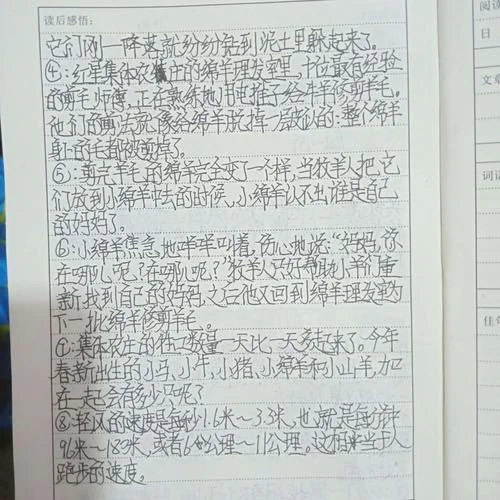 读后感悟:
它们刚一降落就纷纷钻到泥土里躲起来了。
④:红星集体农庄的绵羊理发室里,十位最有经验
的剪毛师傅,正在熟练地用电推子给牛羊修剪羊毛。
他们的剪法就像给绵羊脱掉一层皮似的:整个绵羊
身上的毛都被剪掉了。
⑤:剪完羊毛的绵羊完全变了一个样,当牧羊人把它
们放到小绵羊中去的时候,小绵羊认不出谁是自己
的妈妈了。
⑥:小绵羊焦急地咩咩叫着,伤心地说:"妈妈,你
在哪儿呢?在哪儿呢?"牧羊人只好帮助小羊们重
新找到自己的妈妈,之后他又回到绵羊理发室为
下一批绵羊修剪羊毛。
⑦:集体农庄的牲口数量一天比一天多起来了。今年
春新出生的小马,小牛,小猪,小绵羊和小山羊,加
在一起会有多少只呢?
⑧:轻风的速度是每秒1.6米~3.3米,也就是每分钟
96米~18米,或者6公理~11公理。这相当于人
跑步的速度。
阅读
日
文章
词语
佳句